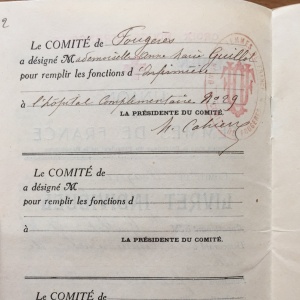 2
Le COMITÉ de Fougères
a désigné Mademoiselle Anne Marie Guillot
pour remplir les fonctions d'Infirmière
à l'hôpital Complémentaire No 39
LA PRÉSIDENTE DU COMITÉ.
Le COMITÉ de
a désigné M
pour remplir les fonctions d
à
LA PRÉSIDENTE DU COMITÉ.
Le COMITÉ de